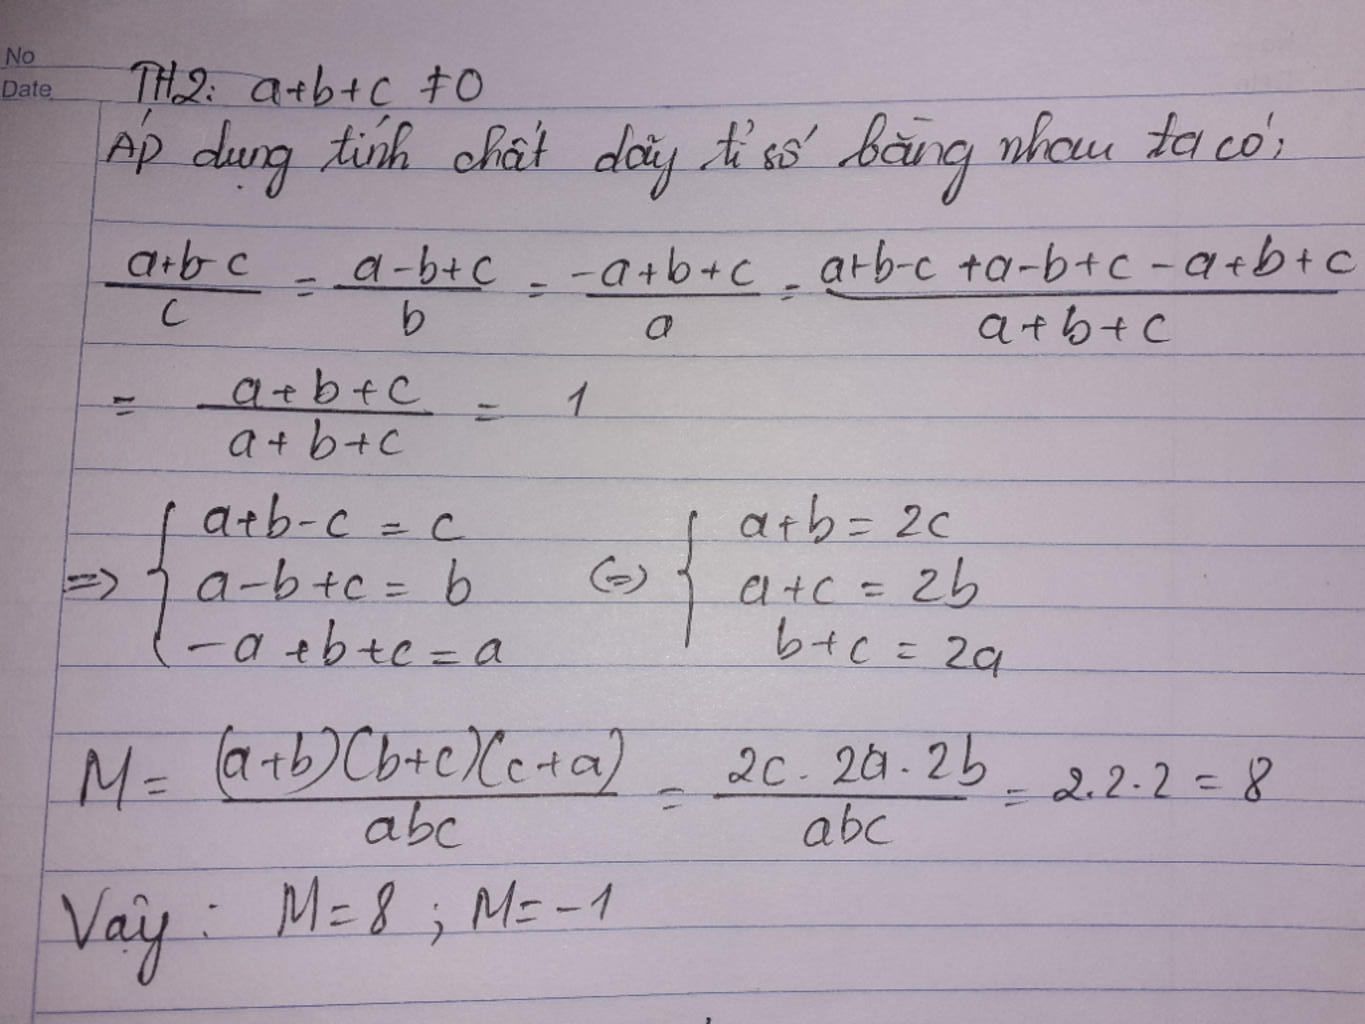 No
Date
TH2: a+b+c ≠0
Áp dụng tính chất dãy tỉ số bằng nhau ta có;
(a+b-c)/c = (a-b+c)/b = (-a+b+c)/a = (a+b-c+a-b+c-a+b+c)/(a+b+c)
= (a+b+c)/(a+b+c) = 1
=> { a+b-c = c (=) { a+b = 2c
a-b+c = b a+c = 2b
-a+b+c = a b+c = 2a
M = ((a+b)(b+c)(c+a))/(abc) = (2c . 2a . 2b)/(abc) = 2.2.2 = 8
Vậy : M=8 ; M=-1